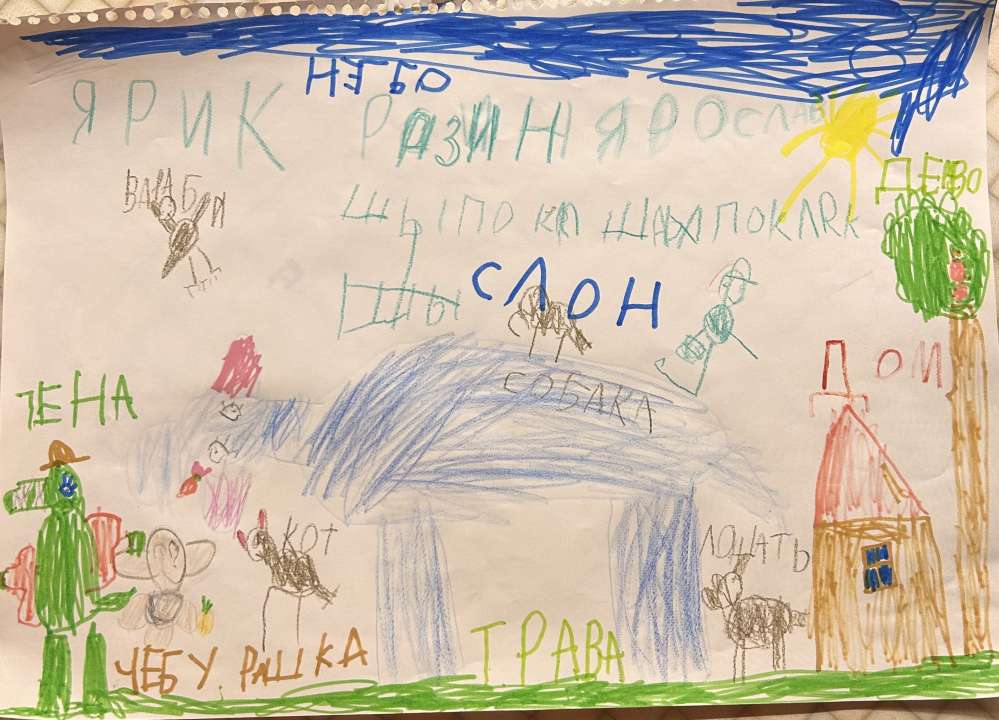 НЕБО
ЯРИК РАЗИН ЯРОСЛАВ
ДЕВО
ВАРАБИ
ШЫПОКЛ ШАХПОКЛЯК
ШЫ
СЛОН
СОБАКА
ДОМ
ГЕНА
КОТ
ЛОШАТЬ
ЧЕБУРАШКА
ТРАВА